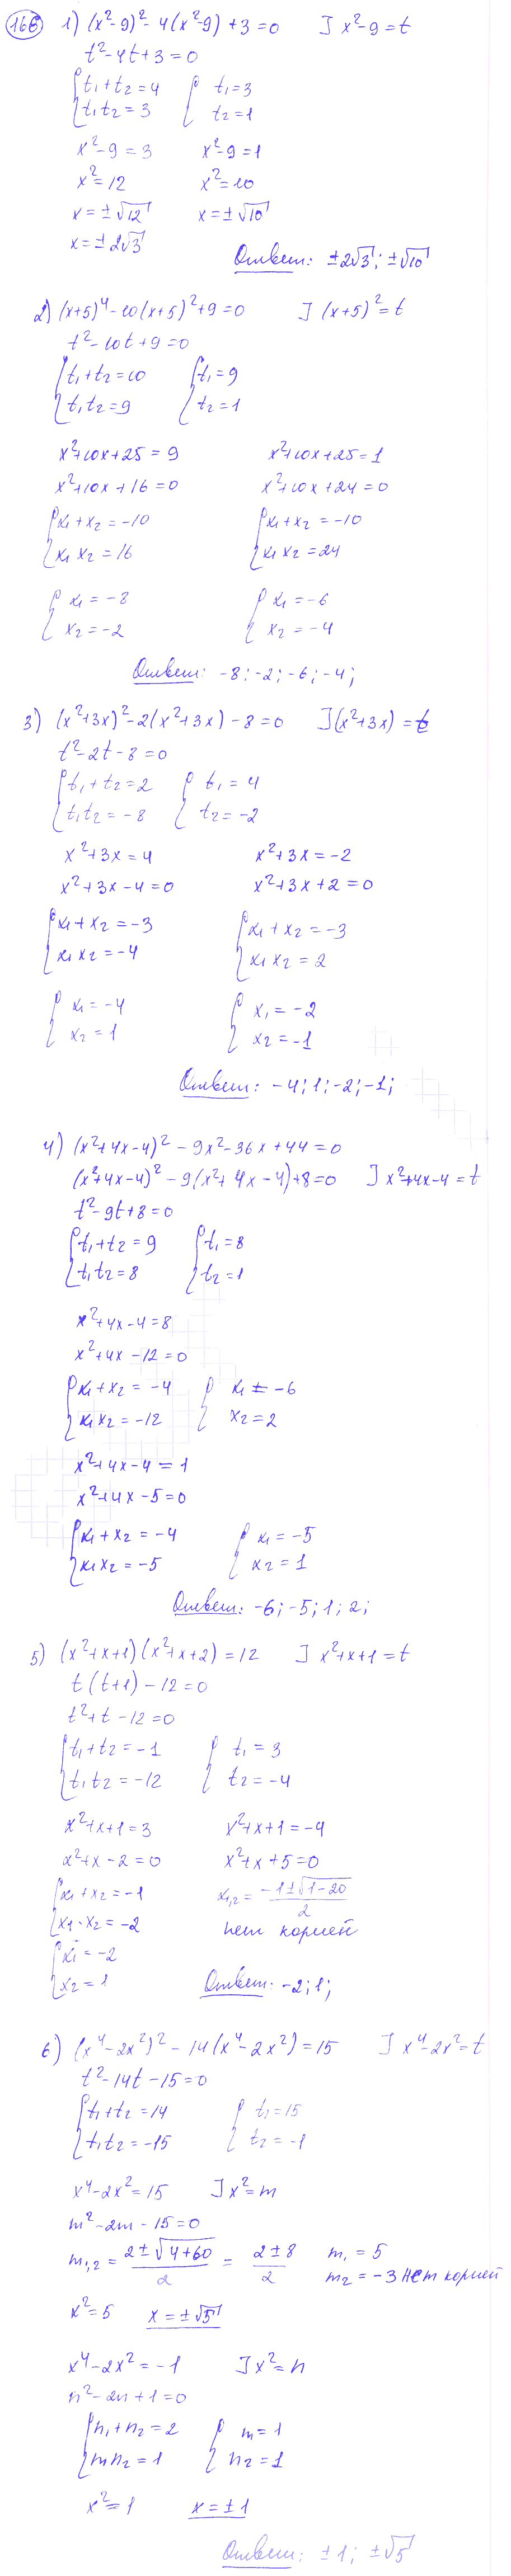 166 1) (x²-9)² - 4(x²-9) + 3 = 0 ] x²-9 = t
t² - 4t + 3 = 0
{ t₁ + t₂ = 4 { t₁ = 3
t₁t₂ = 3 t₂ = 1
x² - 9 = 3 x² - 9 = 1
x² = 12 x² = 10
x = ±√12 x = ±√10
x = ±2√3
Ответ: ±2√3; ±√10
2) (x+5)⁴ - 10(x+5)² + 9 = 0 ] (x+5)² = t
t² - 10t + 9 = 0
{ t₁ + t₂ = 10 { t₁ = 9
t₁t₂ = 9 t₂ = 1
x² + 10x + 25 = 9 x² + 10x + 25 = 1
x² + 10x + 16 = 0 x² + 10x + 24 = 0
{ x₁ + x₂ = -10 { x₁ + x₂ = -10
x₁x₂ = 16 x₁x₂ = 24
{ x₁ = -8 { x₁ = -6
x₂ = -2 x₂ = -4
Ответ: -8; -2; -6; -4;
3) (x²+3x)² - 2(x²+3x) - 8 = 0 ] (x²+3x) = t
t² - 2t - 8 = 0
{ t₁ + t₂ = 2 { t₁ = 4
t₁t₂ = -8 t₂ = -2
x² + 3x = 4 x² + 3x = -2
x² + 3x - 4 = 0 x² + 3x + 2 = 0
{ x₁ + x₂ = -3 { x₁ + x₂ = -3
x₁x₂ = -4 x₁x₂ = 2
{ x₁ = -4 { x₁ = -2
x₂ = 1 x₂ = -1
Ответ: -4; 1; -2; -1;
4) (x²+4x-4)² - 9x² - 36x + 44 = 0
(x²+4x-4)² - 9(x²+4x-4) + 8 = 0 ] x²+4x-4 = t
t² - 9t + 8 = 0
{ t₁ + t₂ = 9 { t₁ = 8
t₁t₂ = 8 t₂ = 1
x² + 4x - 4 = 8
x² + 4x - 12 = 0
{ x₁ + x₂ = -4 { x₁ = -6
x₁x₂ = -12 x₂ = 2
x² + 4x - 4 = 1
x² + 4x - 5 = 0
{ x₁ + x₂ = -4 { x₁ = -5
x₁x₂ = -5 x₂ = 1
Ответ: -6; -5; 1; 2;
5) (x²+x+1)(x²+x+2) = 12 ] x²+x+1 = t
t(t+1) - 12 = 0
t² + t - 12 = 0
{ t₁ + t₂ = -1 { t₁ = 3
t₁t₂ = -12 t₂ = -4
x² + x + 1 = 3 x² + x + 1 = -4
x² + x - 2 = 0 x² + x + 5 = 0
{ x₁ + x₂ = -1 x₁,₂ = (-1 ± √(1-20))/2
x₁·x₂ = -2 нет корней
{ x₁ = -2
x₂ = 1 Ответ: -2; 1;
6) (x⁴-2x²)² - 14(x⁴-2x²) = 15 ] x⁴-2x² = t
t² - 14t - 15 = 0
{ t₁ + t₂ = 14 { t₁ = 15
t₁t₂ = -15 t₂ = -1
x⁴ - 2x² = 15 ] x² = m
m² - 2m - 15 = 0
m₁,₂ = (2 ± √(4+60))/2 = (2 ± 8)/2 m₁ = 5
m₂ = -3 нет корней
x² = 5 x = ±√5
x⁴ - 2x² = -1 ] x² = n
n² - 2n + 1 = 0
{ n₁ + n₂ = 2 { n₁ = 1
n₁n₂ = 1 n₂ = 1
x² = 1 x = ±1
Ответ: ±1; ±√5